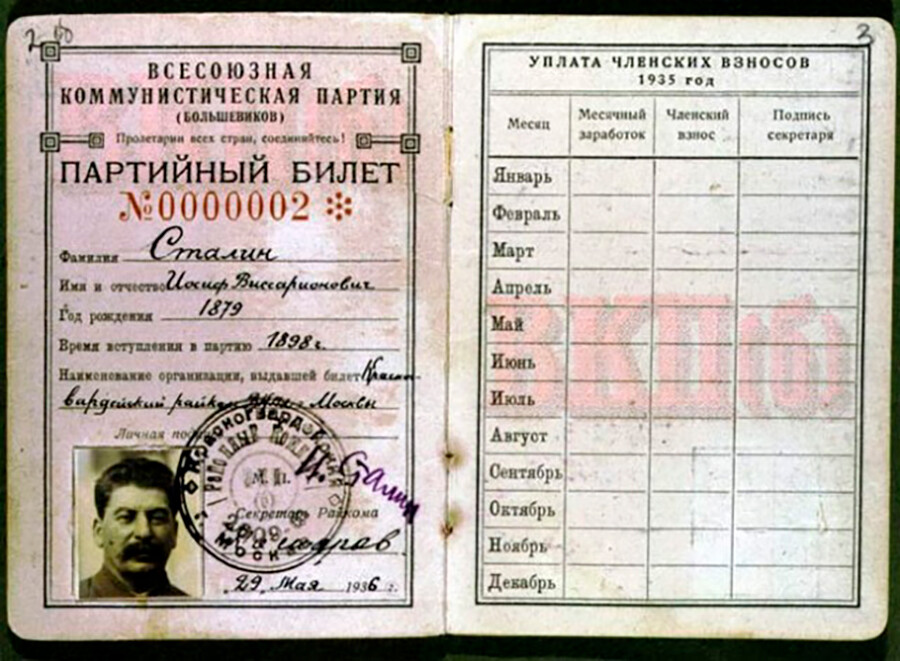 2
ВСЕСОЮЗНАЯ
КОММУНИСТИЧЕСКАЯ ПАРТИЯ
(БОЛЬШЕВИКОВ)
Пролетарии всех стран, соединяйтесь!
ПАРТИЙНЫЙ БИЛЕТ
№0000002
Фамилия Сталин
Имя и отчество Иосиф Виссарионович
Год рождения 1879
Время вступления в партию 1898 г.
Наименование организации, выдавшей билет Красно-
вардейский райком г. Москвы
Личная
И. Сталин
М. П.
Секретарь Райкома
29 Мая 1936 г.
3
УПЛАТА ЧЛЕНСКИХ ВЗНОСОВ
1935 год
Месяц Месячный заработок Членский взнос Подпись секретаря
Январь
Февраль
Март
Апрель
Май
Июнь
Июль
Август
Сентябрь
Октябрь
Ноябрь
Декабрь
ВКП(б)